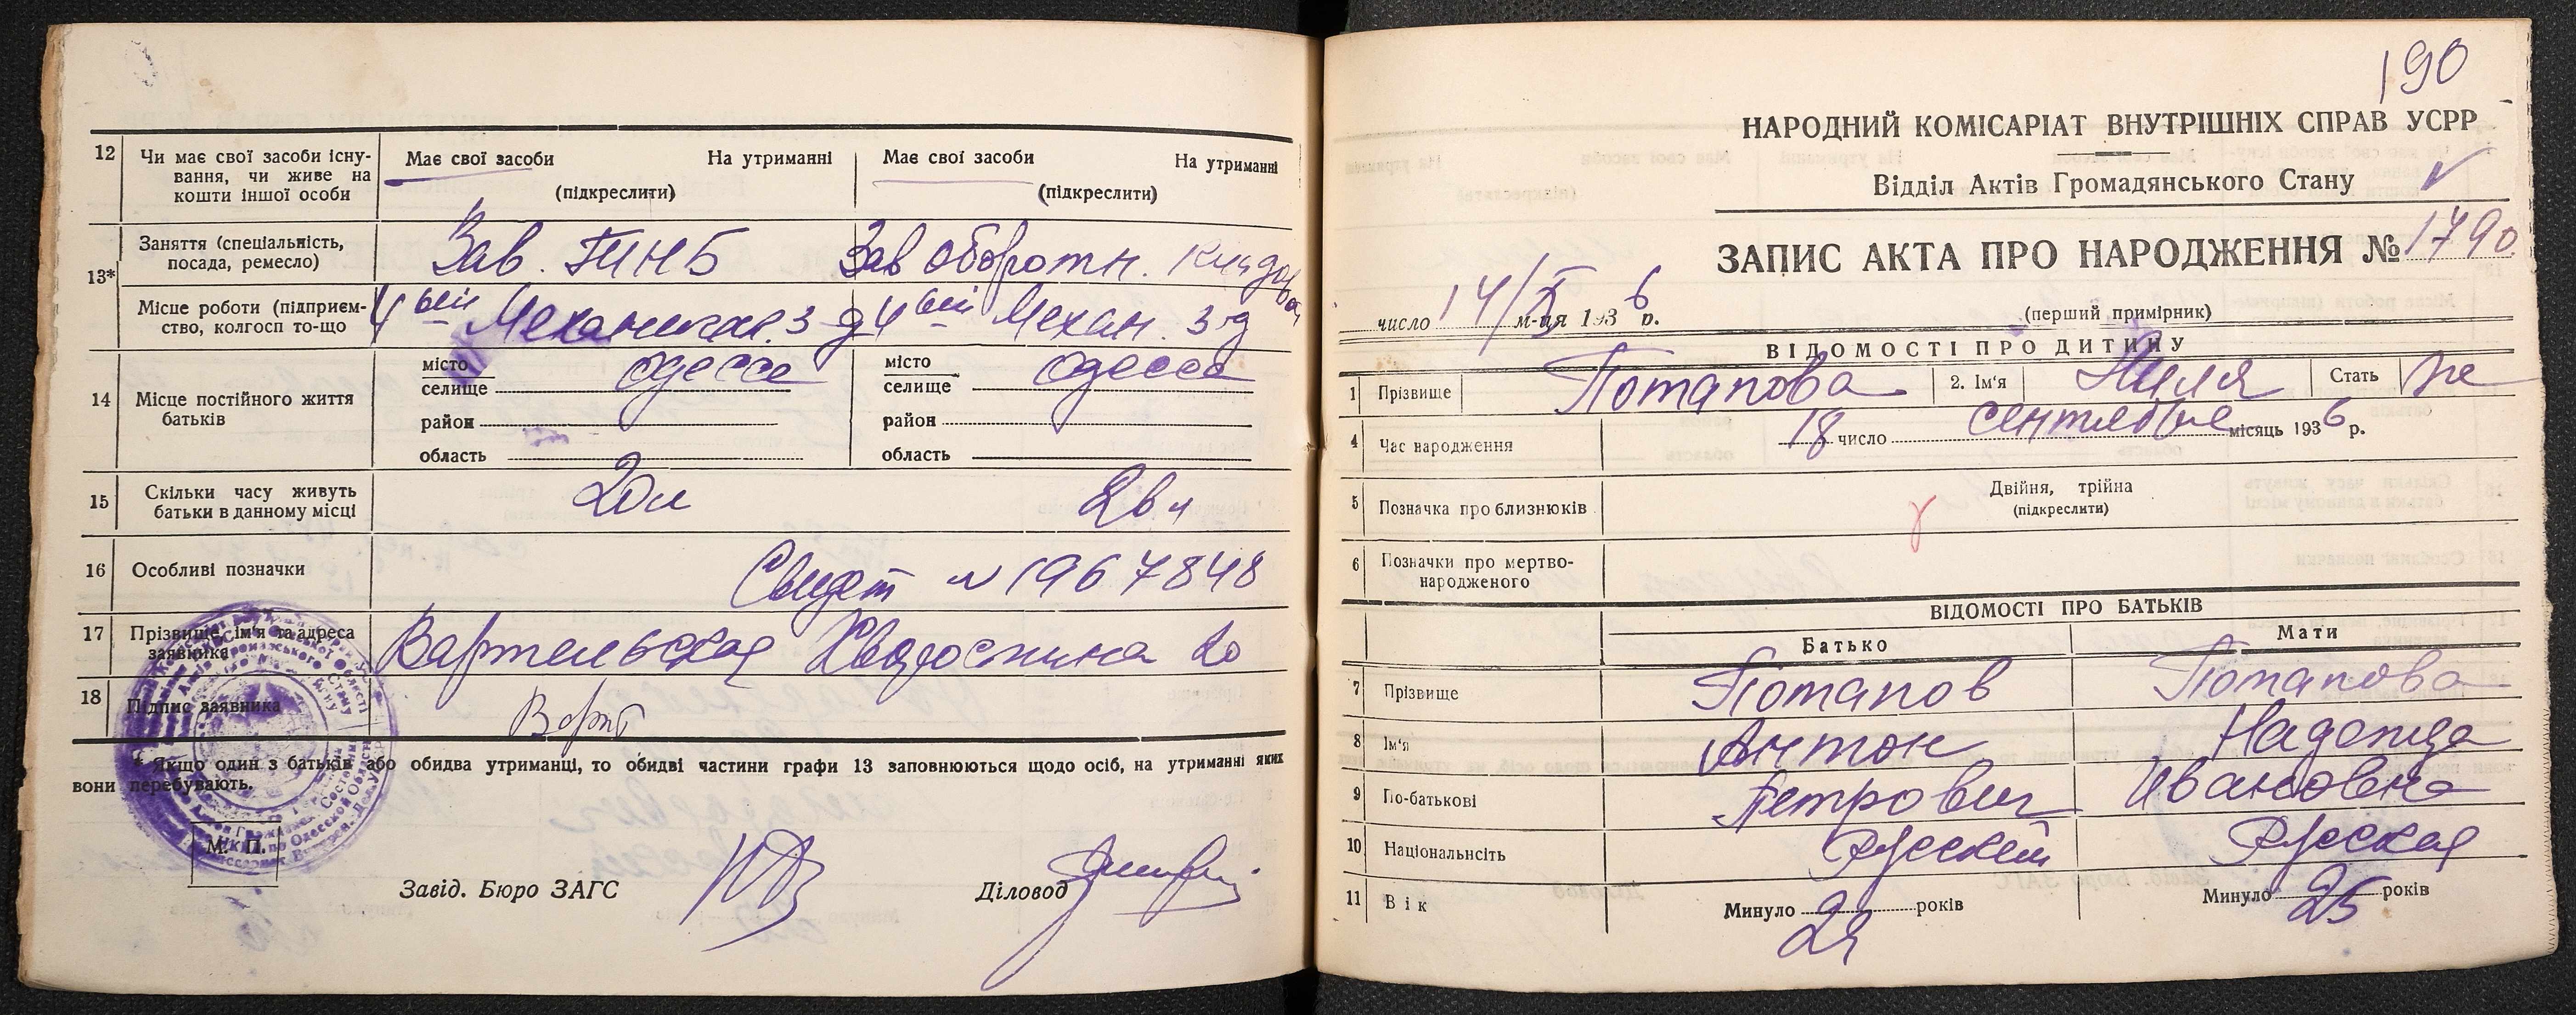 12 Чи має свої засоби існу-
вання, чи живе на
кошти іншої особи
Має свої засоби На утриманні
(підкреслити)
Має свої засоби На утриманні
(підкреслити)
13* Заняття (спеціальність,
посада, ремесло)
Зав.
Зав оборотн.
Місце роботи (підприєм-
ство, колгосп то-що
4 ый Механическ. з-д
4 ый Механ. з-д
14 Місце постійного життя
батьків
місто Одесса
селище
район
область
місто Одесса
селище
район
область
15 Скільки часу живуть
батьки в данному місці
20 л
16 Особливі позначки
Свидет № 1967848
17 Прізвище, ім'я та адреса
заявника
Вартельская Хворостина 20
18 Підпис заявника
Варт
* Якщо один з батьків або обидва утриманці, то обидві частини графи 13 заповнюються щодо осіб, на утриманні яких
вони перебувають.
М. П.
Завід. Бюро ЗАГС
Діловод
190
НАРОДНИЙ КОМІСАРІАТ ВНУТРІШНІХ СПРАВ УСРР
Відділ Актів Громадянського Стану
ЗАПИС АКТА ПРО НАРОДЖЕННЯ № 1790
число 14/X м-ця 1936 р.
(перший примірник)
ВІДОМОСТІ ПРО ДИТИНУ
1 Прізвище Потапова 2. Ім'я Стать же
4 Час народження 18 число сентября місяць 1936 р.
5 Позначка про близнюків
Двійня, трійна
(підкреслити)
6 Позначки про мертво-
народженого
ВІДОМОСТІ ПРО БАТЬКІВ
Батько Мати
7 Прізвище Потапов Потапова
8 Ім'я Антон Надежда
9 По-батькові Петрович Ивановна
10 Національність Русский Русская
11 Вік Минуло років Минуло 25 років